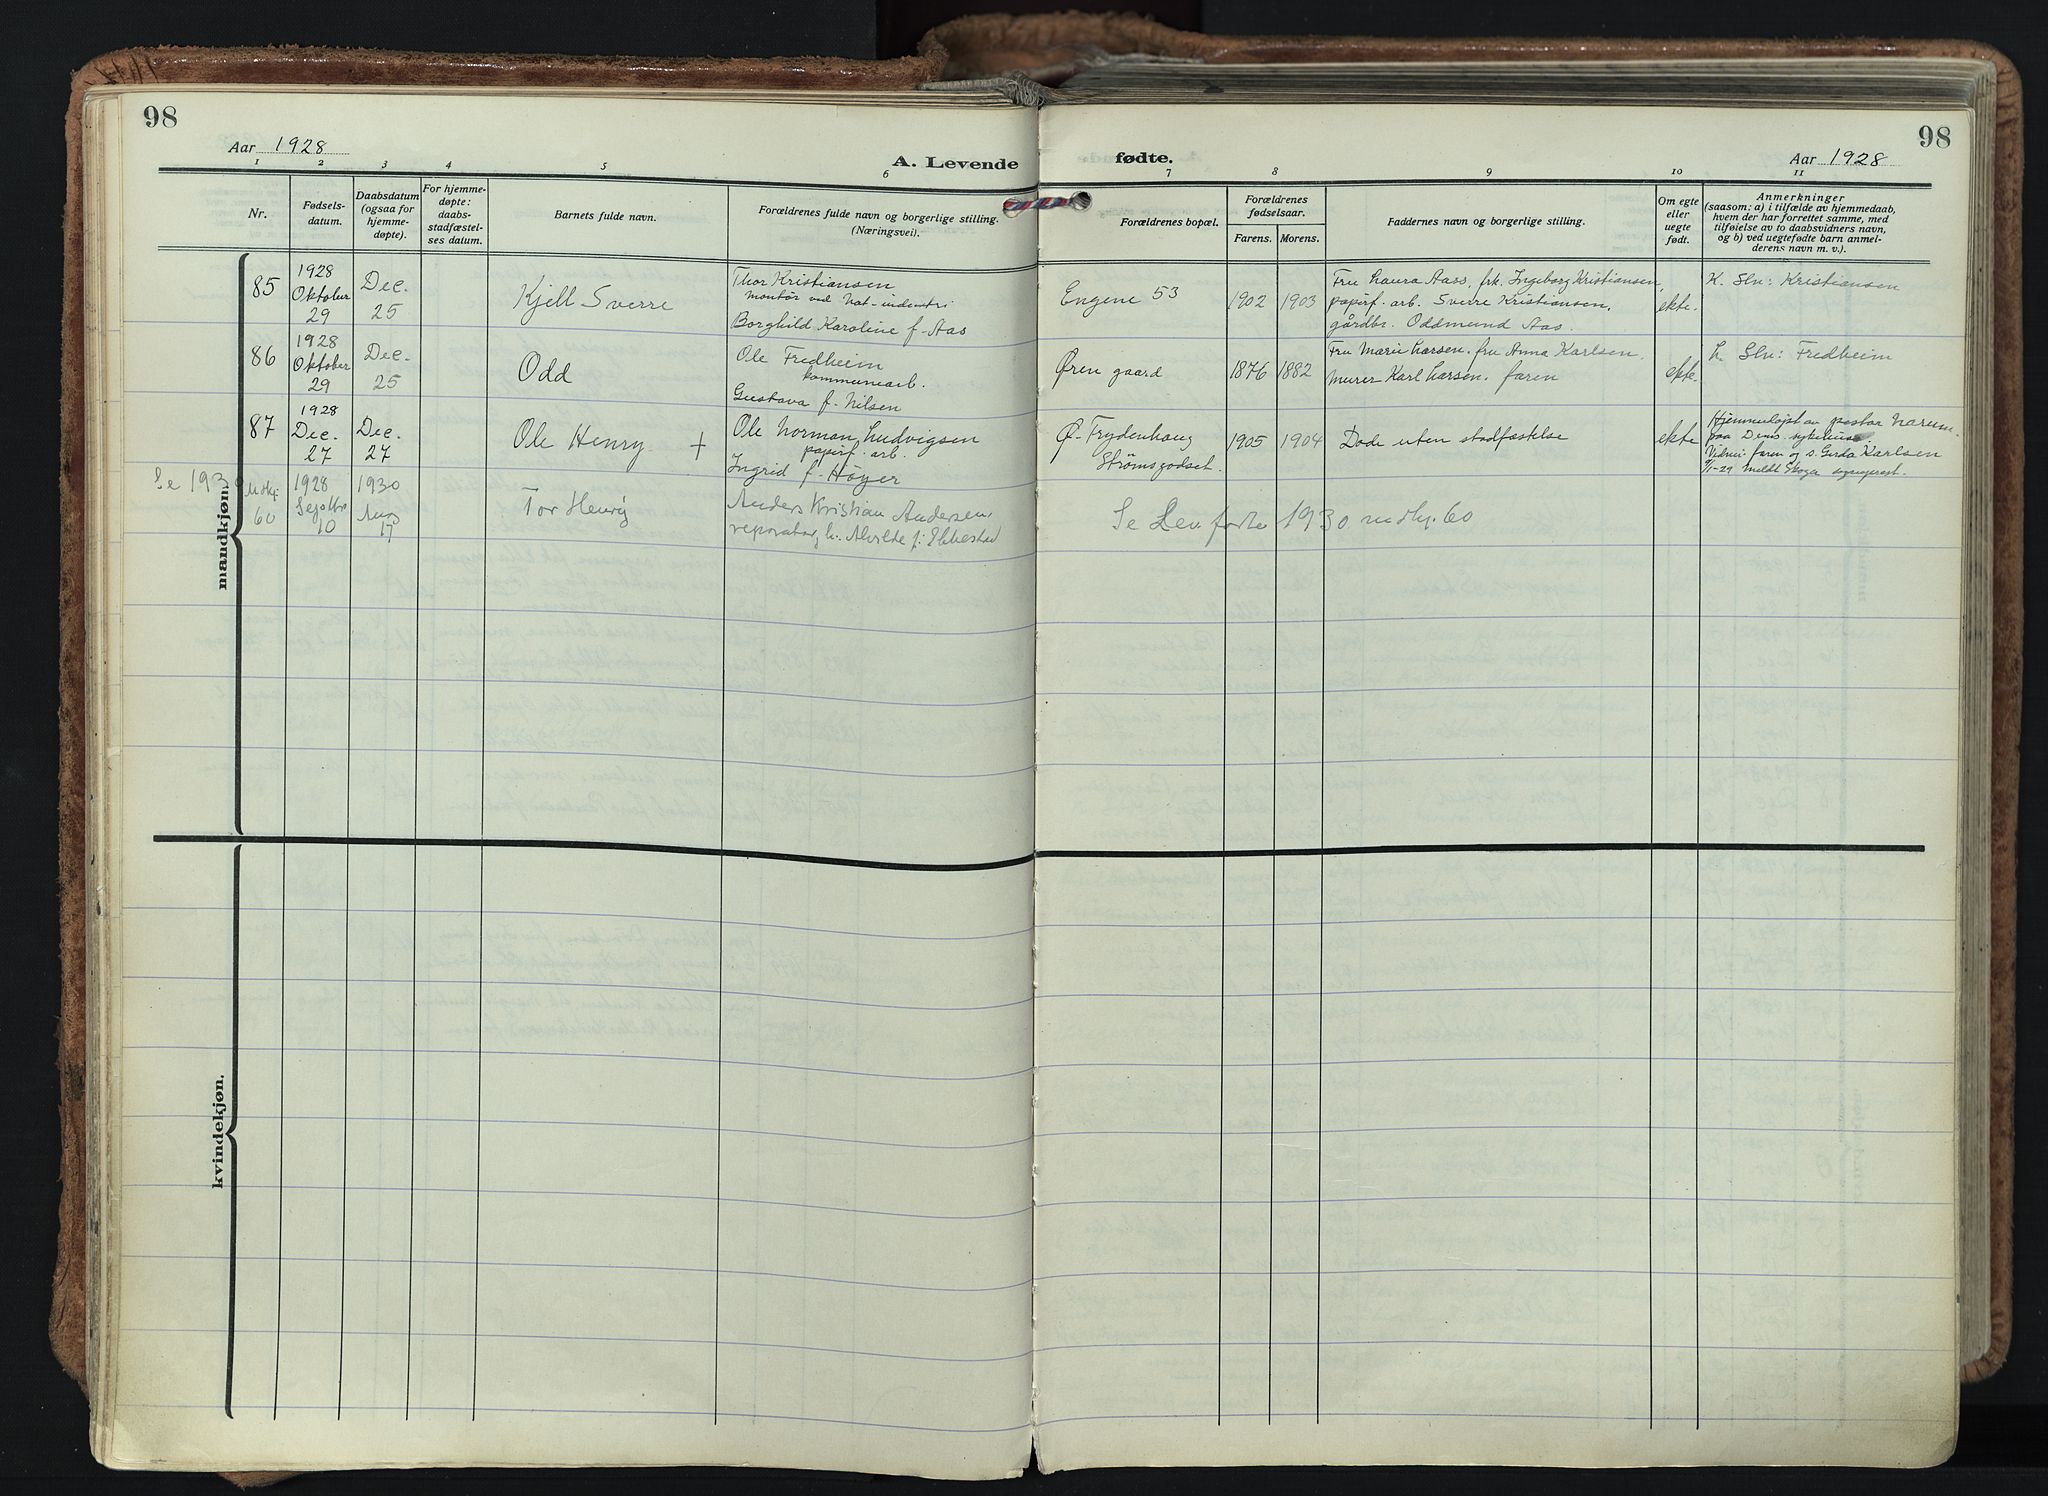 98
Aar 1928
A. Levende
1 2 3 4 5 6
Nr.
Fødsels-
datum.
Daabsdatum
(ogsaa for
hjemme-
døpte).
For hjemme-
døpte:
daabs-
stadfæstel-
ses datum.
Barnets fulde navn.
Forældrenes fulde navn og borgerlige stilling.
(Næringsvei).
mandkjøn.
85
1928
Oktober
29
Dec.
25
Kjell Sverre
Thor Kristiansen
montør ved Nat-industri
Borghild Karoline f. Aas
86
1928
Oktober
29
Dec.
25
Odd
Ole Fredheim
kommunearb.
Gustava f. Nilsen
87
1928
Dec.
27
Dec.
27
Ole Henry +
Ole Norman Ludvigsen
papirf. arb.
Ingrid f. Höyer
Se 1930
Mdkj
60
1928
Septbr
10
1930
Aug
17
Tor Henry
Anders Kristian Andersen,
reparatør, h. Alvilde f: Ekkestad
kvindekjøn.
98
fødte.
Aar 1928
7 8 9 10 11
Forældrenes bopæl.
Forældrenes
fødselsaar.
Farens. Morens.
Faddernes navn og borgerlige stilling.
Om egte
eller
uegte
født.
Anmerkninger
(saasom: a) i tilfælde av hjemmedaab,
hvem der har forrettet samme, med
tilføielse av to daabsvidners navn,
og b) ved uegtefødte barn anmel-
derens navn m. v.).
Engene 53
1902 1903
Fru Laura Aass, frk. Ingeborg Kristiansen,
papirf. arb. Sverre Kristiansen,
gårdbr. Oddmund Aas.
ekte.
K. Sln: Kristiansen
Øren gaard
1876 1882
Fru Marie Larsen. fru Anna Karlsen.
murer Karl Larsen. faren
ekte.
L. Sln: Fredheim
Ø. Frydenhaug
Strømsgodset.
1905 1904
Døde uten stadfæstelse
ekte
Hjemmedøpt av pastor Narum
paa Dr.ms. sykehus.
Vidner: faren og s. Gerda Karlsen
meldt Skoger sogneprest.
Se Lev. fødte 1930 mdkj. 60